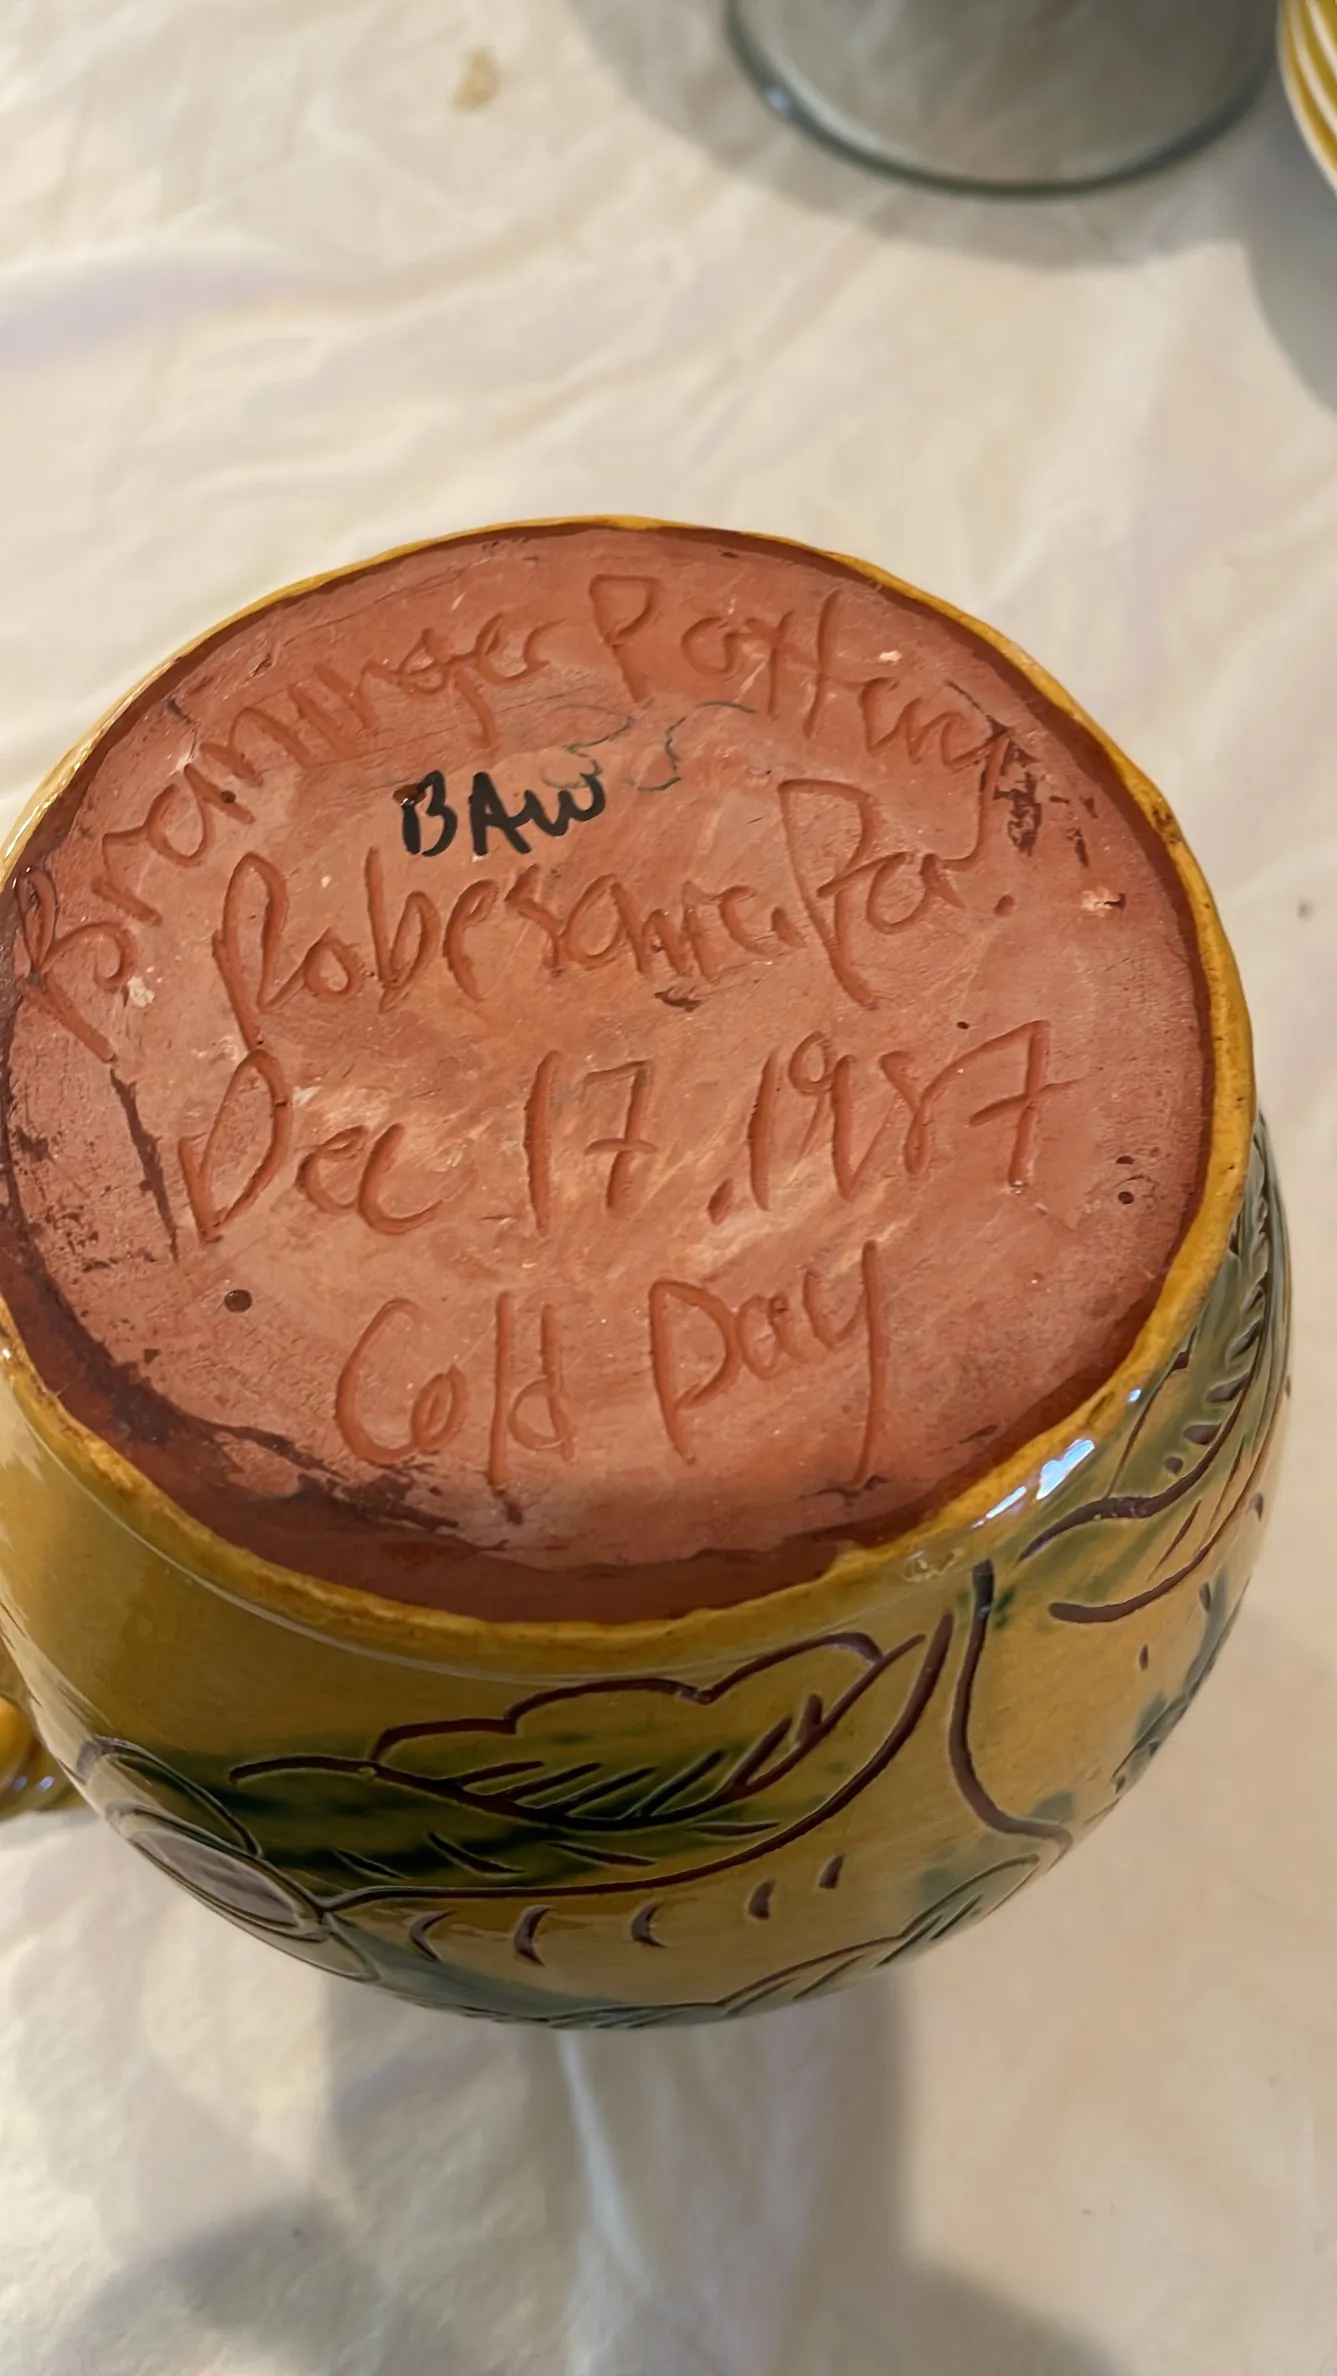 Braninger Pottery
BAW
Robesonia, Pa.
Dec 17, 1987
Cold Day